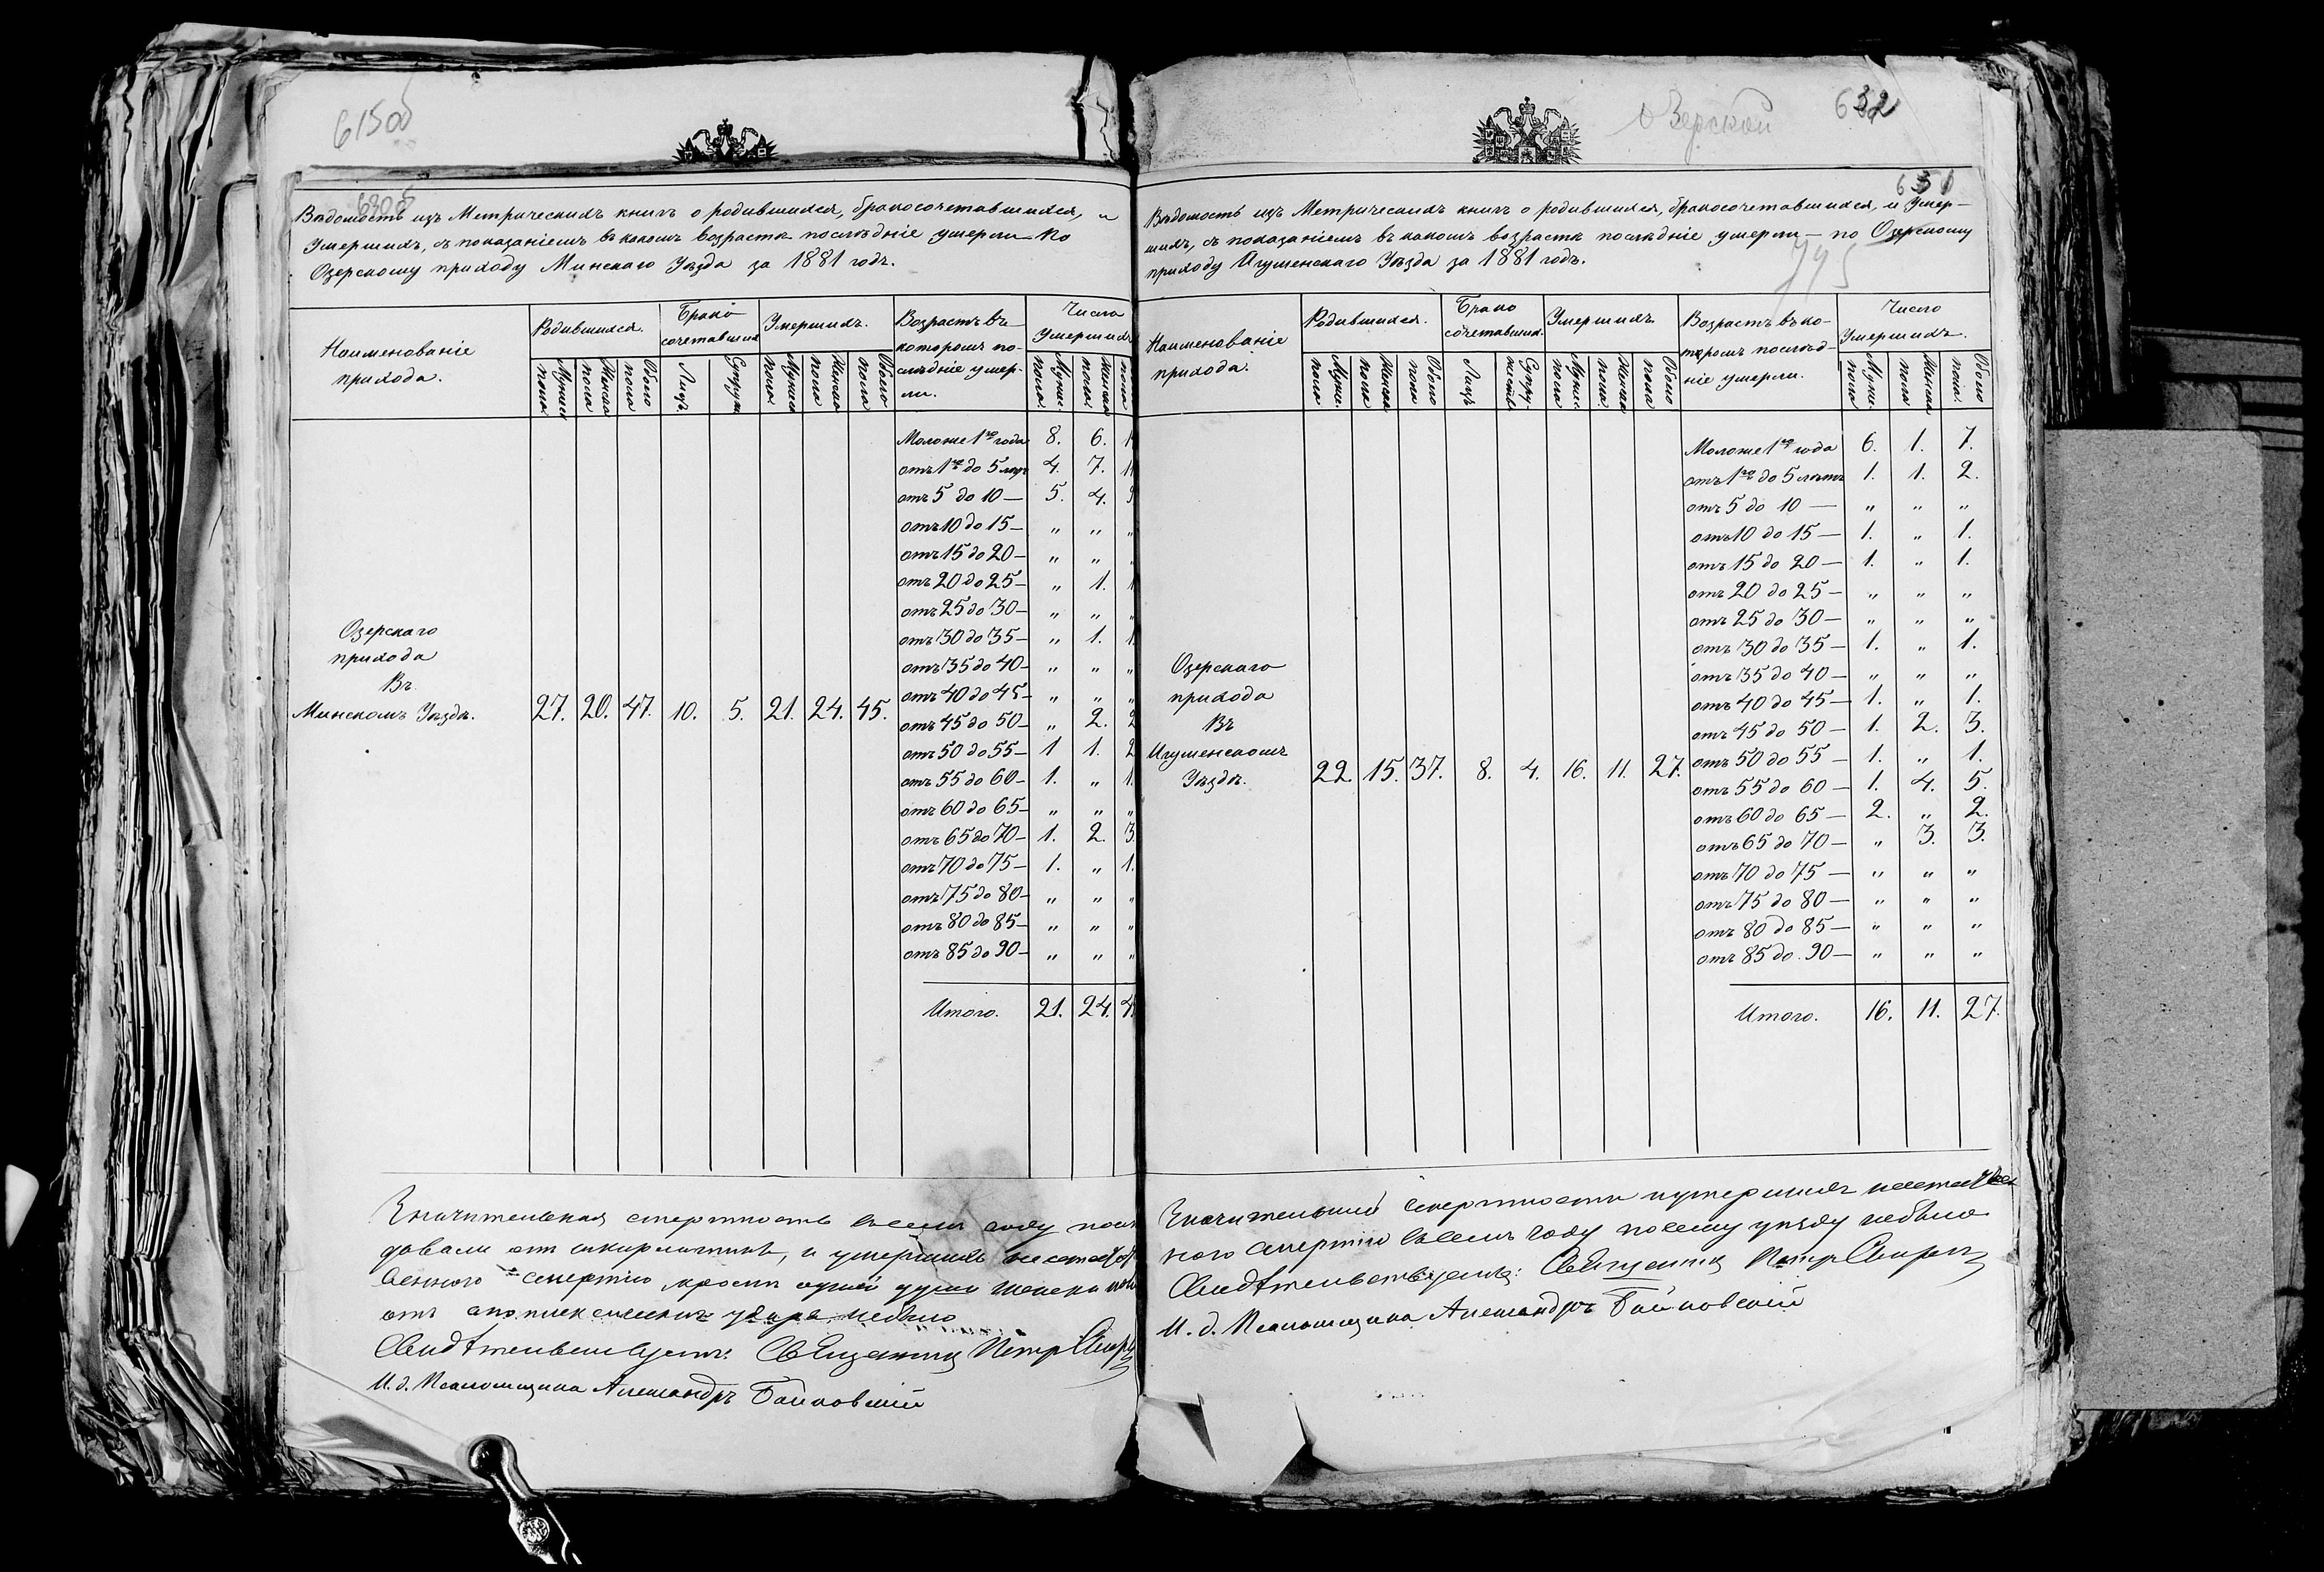 615об
690об
Вѣдомость изъ Метрическихъ книгъ о родившихся, бракосочетавшихся, и
Умершихъ, съ показаніемъ въ какомъ возрастѣ послѣдніе умерли – По
Озерскому приходу Минскаго Уѣзда за 1881 годъ.
Наименованіе прихода.
Родившихся.
Брако сочетавшихся
Умершихъ.
Возрастъ въ которомъ послѣдніе умерли.
Число Умершихъ
Мужес. пола Женска пола Обоего пола Лицъ Супруж. Мужес пола Женска пола Обоего пола Мужес. пола Женска пола пола
Моложе 1го года 8. 6. 1
отъ 1го до 5 лѣтъ 4. 7. 1
отъ 5 до 10 — 5. 4. 9
отъ 10 до 15 — „ „ „
отъ 15 до 20 — „ „ „
отъ 20 до 25 — „ 1. 1
отъ 25 до 30 — „ „ „
отъ 30 до 35 — „ 1. 1
отъ 35 до 40 — „ „ „
отъ 40 до 45 — „ „ „
отъ 45 до 50 — „ 2. 2
отъ 50 до 55 — 1 1. 2
отъ 55 до 60 — 1. „ 1.
отъ 60 до 65 — „ „ „
отъ 65 до 70 — 1. 2. 3
отъ 70 до 75 — 1. „ 1.
отъ 75 до 80 — „ „ „
отъ 80 до 85 — „ „ „
отъ 85 до 90 — „ „ „
Озерскаго
прихода
Въ
Минскомъ Уѣздѣ. 27. 20. 47. 10. 5. 21. 24. 45.
Итого. 21. 24. 4
Значительная смертность въ семъ году
отъ скарлатины, и умершихъ
смертію кромѣ одной души женска
отъ удара небыло
Свидѣтельствуетъ: Священникъ Петръ
И. д. Псаломщика Александръ Байковскій
Озерской
632
631
775
Вѣдомость изъ Метрическихъ книгъ о родившихся, бракосочетавшихся, и Умер-
шихъ, съ показаніемъ въ какомъ возрастѣ послѣдніе умерли – по Озерскому
приходу Игуменскаго Уѣзда за 1881 годъ.
Наименованіе прихода.
Родившихся.
Брако сочетавшихся.
Умершихъ
Возрастъ въ ко-торомъ послѣд-ніе умерли.
Число Умершихъ.
Муже. пола Женска пола Обоего пола Лицъ Супру-жествъ Мужес. пола Женска пола Обоего пола Муже. пола Женска пола Обоего пола
Моложе 1го года 6. 1. 7.
отъ 1го до 5 лѣтъ 1. 1. 2.
отъ 5 до 10 — „ „ „
отъ 10 до 15 — 1. „ 1.
отъ 15 до 20 — 1. „ 1.
отъ 20 до 25 — „ „ „
отъ 25 до 30 — „ „ „
отъ 30 до 35 — 1. „ 1.
отъ 35 до 40 — „ „ „
отъ 40 до 45 — 1. „ 1.
отъ 45 до 50 — 1. 2. 3.
отъ 50 до 55 — 1. „ 1.
отъ 55 до 60 — 1. 4. 5.
отъ 60 до 65 — 2. „ 2.
отъ 65 до 70 — „ 3. 3.
отъ 70 до 75 — „ „ „
отъ 75 до 80 — „ „ „
отъ 80 до 85 — „ „ „
отъ 85 до 90 — „ „ „
Озерскаго
прихода
Въ
Игуменскомъ
Уѣздѣ. 22. 15. 37. 8. 4. 16. 11. 27.
Итого. 16. 11. 27.
смертности и умершихъ
смертію въ семъ году по сему уѣзду небыло
Свидѣтельствуетъ: Священникъ Петръ
И. д. Псаломщика Александръ Байковскій